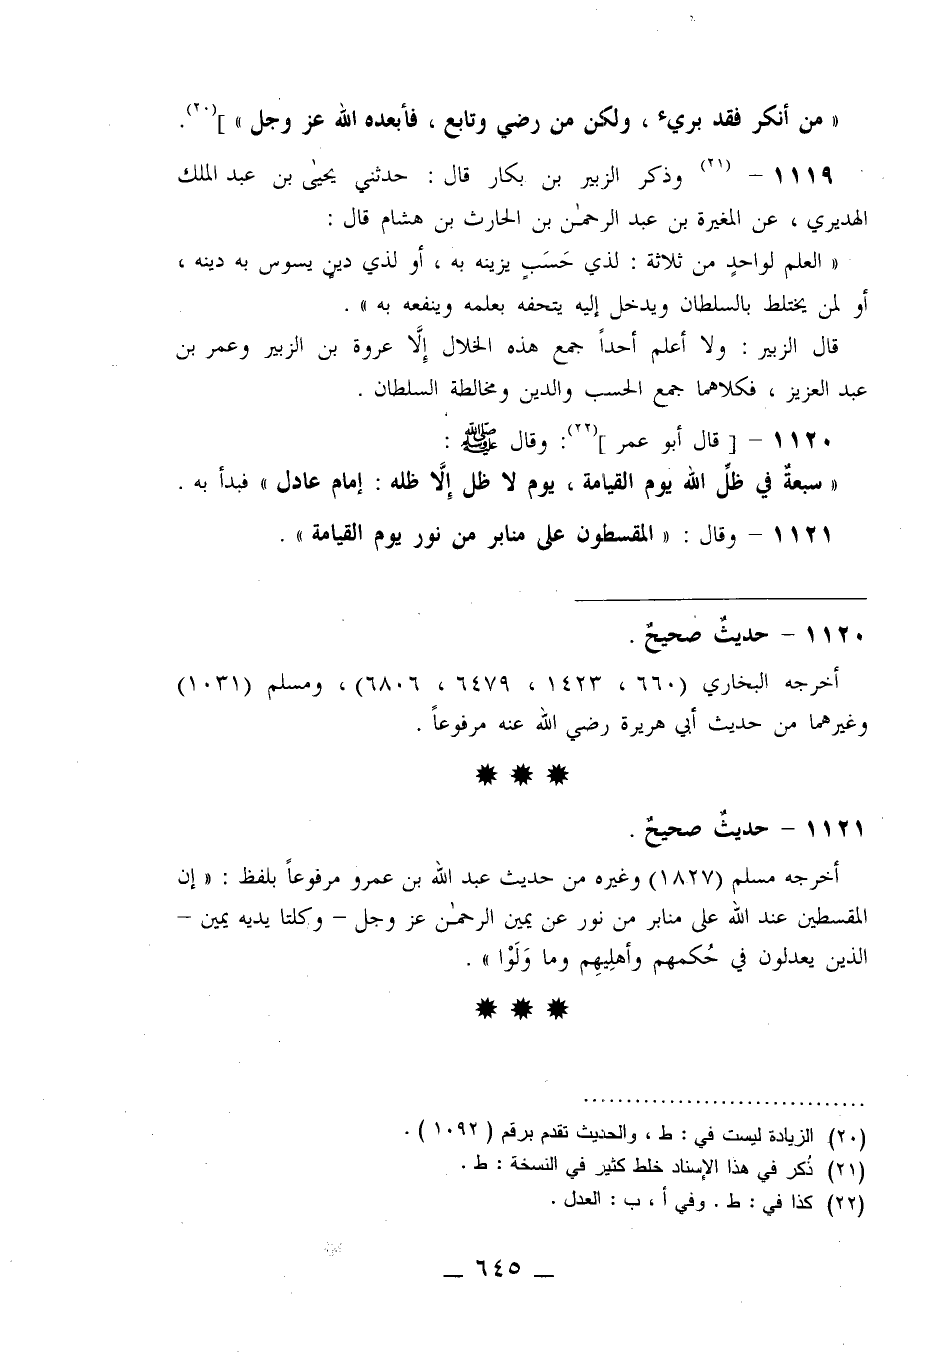 « من أنكر فقد بريء ، ولكن من رضي وتابع ، فأبعده الله عز وجل » ](٢٠).
١١١٩ – (٢١) وذكر الزبير بن بكار قال : حدثني يحيىٰ بن عبد الملك
الهديري ، عن المغيرة بن عبد الرحمـٰن بن الحارث بن هشام قال :
« العلم لواحدٍ من ثلاثة : لذي حَسَبٍ يزينه به ، أو لذي دينٍ يسوس به دينه ،
أو لمن يختلط بالسلطان ويدخل إليه يتحفه بعلمه وينفعه به » .
قال الزبير : ولا أعلم أحداً جمع هذه الخلال إلَّا عروة بن الزبير وعمر بن
عبد العزيز ، فكلاهما جمع الحسب والدين ومخالطة السلطان .
١١٢٠ – [ قال أبو عمر ](٢٢): وقال ﷺ :
« سبعةٌ في ظلِّ الله يوم القيامة ، يوم لا ظل إلَّا ظله : إمام عادل » فبدأ به .
١١٢١ – وقال : « المقسطون على منابر من نور يوم القيامة » .
١١٢٠ – حديثٌ صحيحٌ .
أخرجه البخاري (٦٦٠ ، ١٤٢٣ ، ٦٤٧٩ ، ٦٨٠٦) ، ومسلم (١٠٣١)
وغيرهما من حديث أبي هريرة رضي الله عنه مرفوعاً .
١١٢١ – حديثٌ صحيحٌ .
أخرجه مسلم (١٨٢٧) وغيره من حديث عبد الله بن عمرو مرفوعاً بلفظ : « إن
المقسطين عند الله على منابر من نور عن يمين الرحمـٰن عز وجل – وكلتا يديه يمين –
الذين يعدلون في حُكمهم وأهلِيهِم وما وَلَوْا » .
(٢٠) الزيادة ليست في : ط ، والحديث تقدم برقم ( ١٠٩٢ ) .
(٢١) ذُكر في هذا الإسناد خلط كثير في النسخة : ط .
(٢٢) كذا في : ط . وفي أ ، ب : العدل .
— ٦٤٥ —